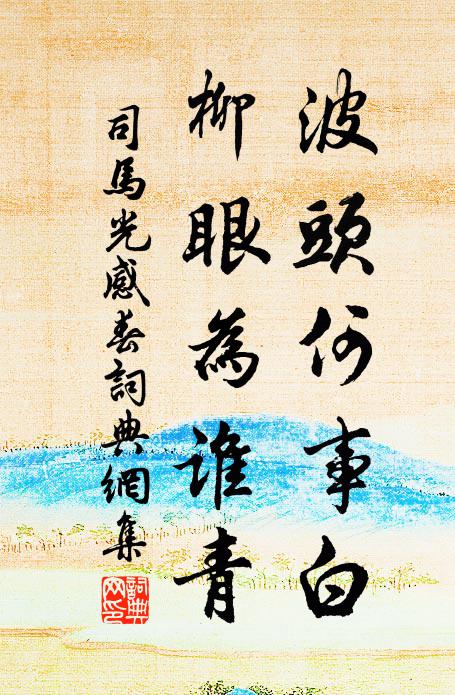 波頭何事白
柳眼為誰青
司馬光感春詞典網集
詞典
网印